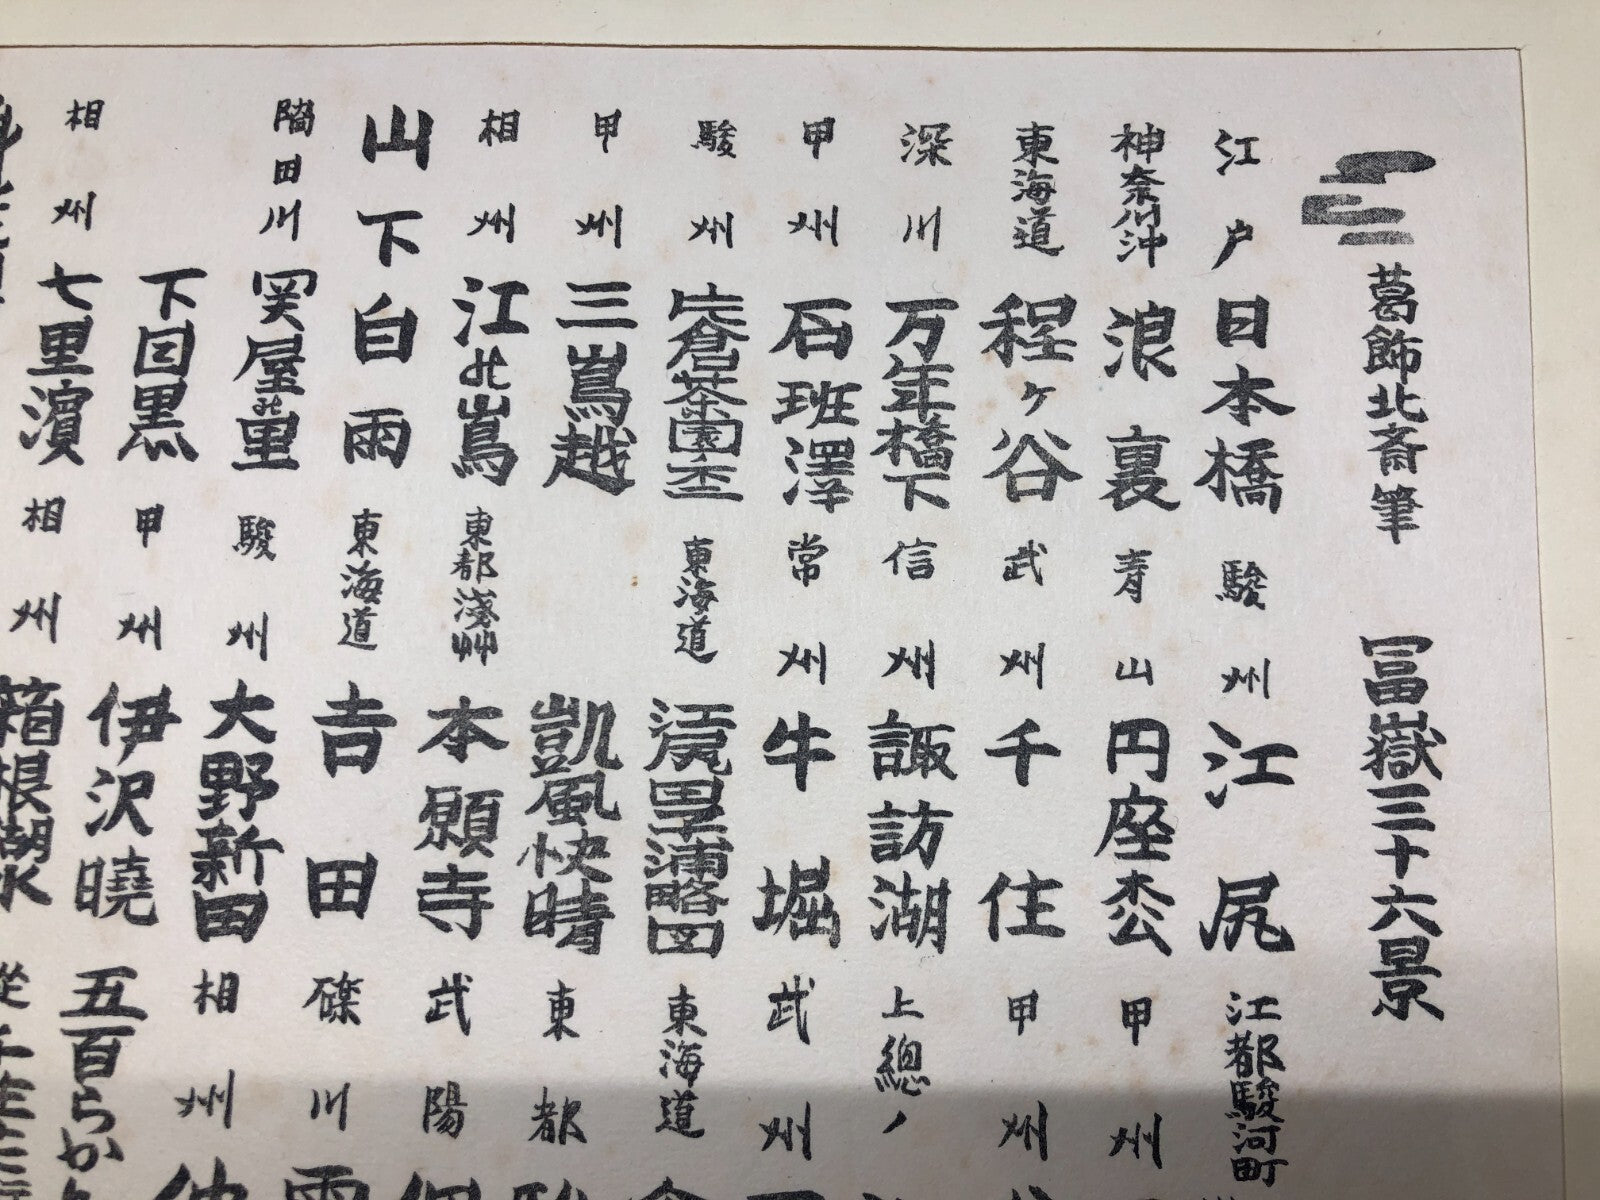 葛飾北斎筆 冨嶽三十六景
江戸 日本橋 駿州 江尻 江都駿河町
神奈川沖 浪裏 青山 円座枩 甲州
東海道 程ヶ谷 武州 千住 甲州
深川 万年橋下 信州 諏訪湖 上總ノ
甲州 石班澤 常州 牛堀 武州
駿州 片倉茶園ノ不二 東海道 江尻田子浦略図 東海道
甲州 三嶌越 凱風快晴 東都
相州 江の嶌 東都淺艸 本願寺 武陽
山下白雨 東海道 吉田 礫川
隅田川 関屋の里 駿州 大野新田 相州
下目黒 甲州 伊沢暁 五百らか
相州 七里濱 相州 箱根湖水